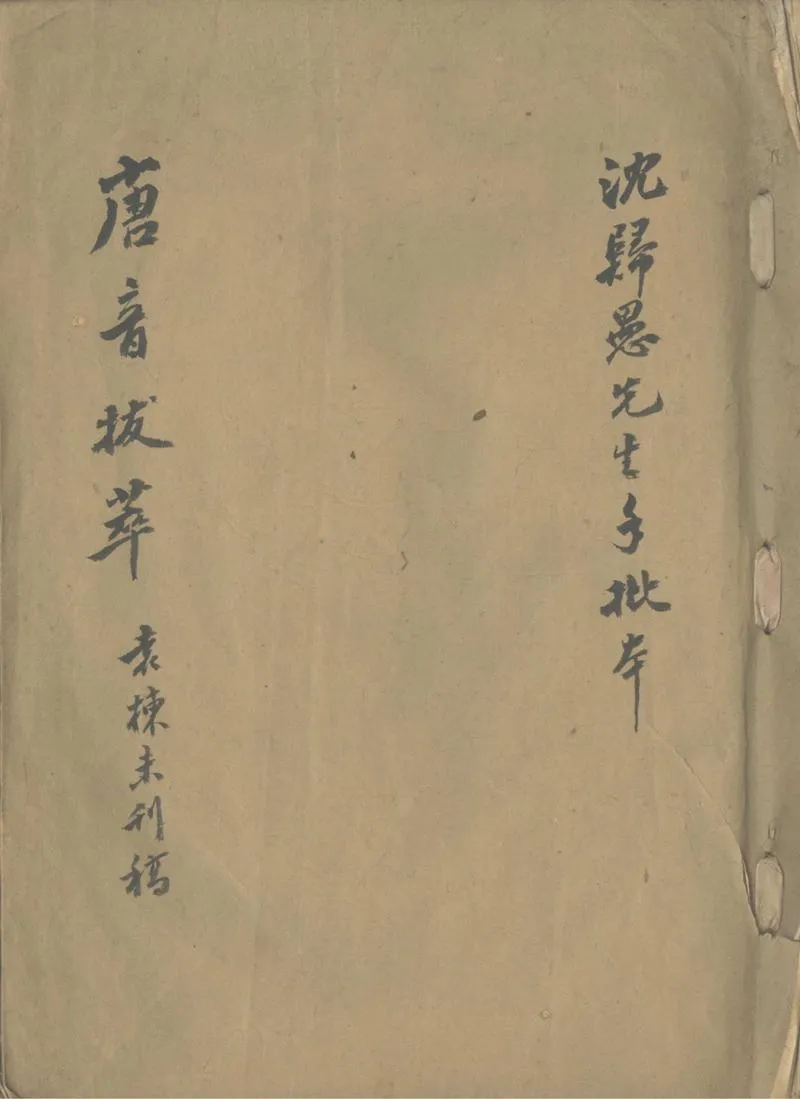 沈歸愚先生手批本
唐音拔萃
袁棟未刊稿